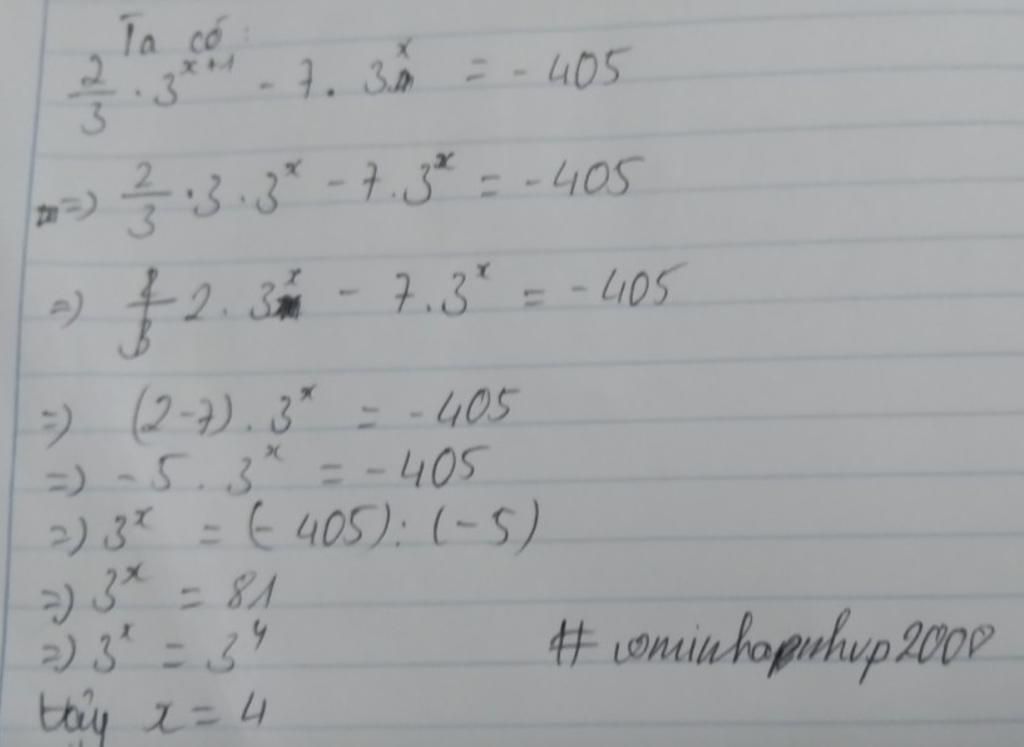 Ta có:
2/3 . 3^(x+1) - 7. 3^x = - 405
=) 2/3 . 3 . 3^x - 7. 3^x = - 405
=) 2. 3^x - 7. 3^x = - 405
=) (2-7) . 3^x = - 405
=) - 5 . 3^x = - 405
=) 3^x = (- 405) : (- 5)
=) 3^x = 81
=) 3^x = 3^4
Vậy x = 4